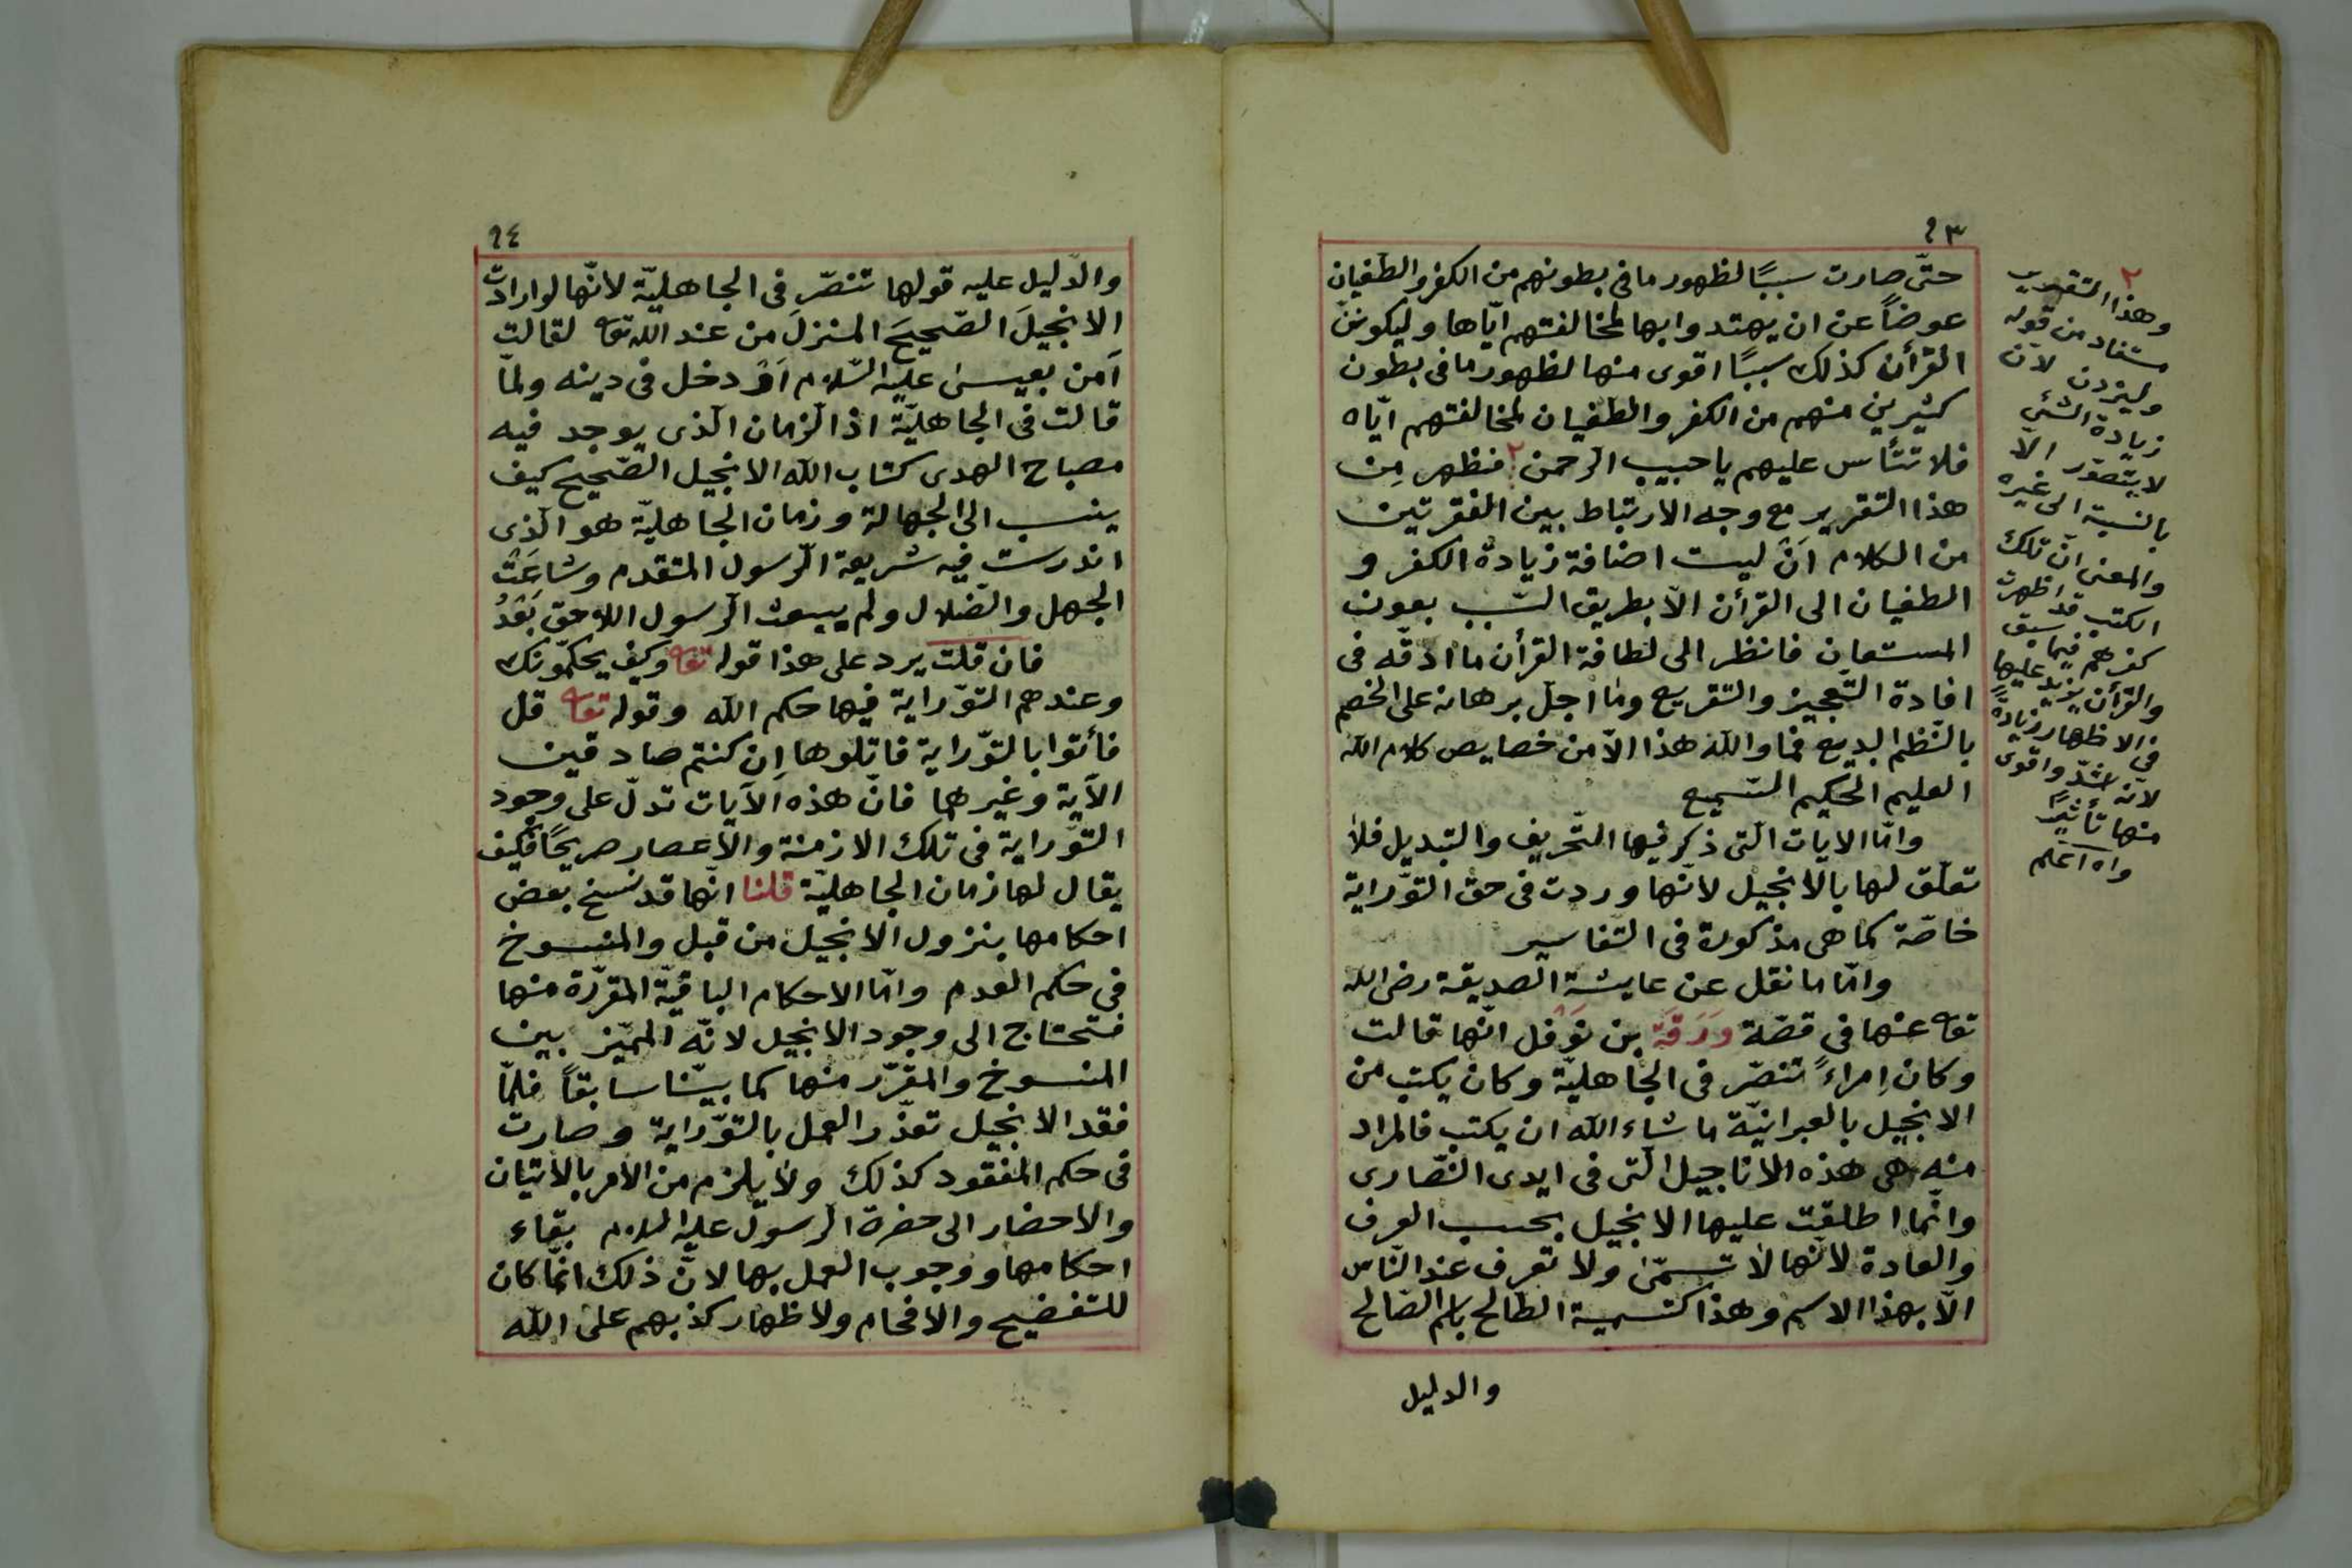 ٩٣
حتّى صارت سببًا لظهور ما فى بطونهم من الكفر والطغيان
عوضاً عن ان يهتدوا بها لمخالفتهم ايّاها وليكوننّ
القرأن كذلك سببًا اقوى منها لظهور ما فى بطون
كثيرين منهم من الكفر والطغيان لمخالفتهم ايّاه
فلا تتأس عليهم يا حبيب الرّحمن ٢ فظهر مِن
هذا التقرير مع وجه الارتباط بين الفقرتين
من الكلام اَنْ ليست اضافة زيادة الكفر و
الطغيان الى القرأن الّا بطريق السّبب بعون
المستعان فانظر الى لطافة القرأن ما ادقّه فى
افادة التّعجيز والتّقريع وما اجلّ برهانه على الخصم
بالنّظم البديع فما والله هذا الّا من خصايص كلام الله
العليم الحكيم السّميع
وامّا الايات الّتى ذكر فيها التّحريف والتبديل فلا
تعلّق لها بالانجيل لانّها وردت فى حق التوّراية
خاصّة كما هى مذكورة فى التّفاسير
وامّا ما نقل عن عايشة الصديقة رضى الله
تعا عنها فى قصّة وَرَقَة بن نَوْفل انّها قالت
وكان اِمراءً تنصّر فى الجاهليّة وكان يكتب من
الانجيل بالعبرانيّة ما شاء الله ان يكتب فالمراد
منه هى هذه الاناجيل الّتى فى ايدى النّصارى
وانّما اطلقت عليها الانجيل بحسب العرف
والعادة لانّها لا تسمّى ولا تعرف عند النّاس
الّا بهذا الاسم وهذا كتسمية الطّالح باسم الصّالح
والدليل
٢
وهذا التقريب
مستفاد من قوله
وليزيدن لان
زيادة الشئ
لا يتصوّر الّا
بالنسبة الى غيره
والمعنى انّ تلك
الكتب قد اظهرت
كفرهم فيما سبق
والقرأن يزيد عليها
فى الاظهار زيادةً
لانّه اشدّ واقوى
منها تأثيرًا
والله اعلم
٩٤
والدّليل عليه قولها تنصّر فى الجاهليّة لانّها لو ارادت
الانجيلَ الصّحيحَ المنزلَ من عند الله تعا لقالت
اَمن بعيسى عليه السّلام اَوْ دخل فى دينه ولمّا
قالت فى الجاهليّة اذ الزمان الّذى يوجد فيه
مصباح الهدى كتاب الله الانجيل الصّحيح كيف
ينسب الى الجهالة وزمان الجاهليّة هو الّذى
اندرست فيه شريعة الرّسول المتقدم وشاعَتْ
الجهل والضّلال ولم يبعث الرّسول اللاحق بَعْدُ
فان قلت يرد على هذا قوله تعا وكيف يحكّمونك
وعندهم التوّراية فيها حكم الله وقوله تعا قل
فأتوا بالتوّراية فاتلوها اِن كنتم صادقين
الآية وغيرهما فانّ هذه الآيات تدلّ على وجود
التوّراية فى تلك الازمنة والاعصار صريحًا فكيف
يقال لها زمان الجاهليّة قلنا انّها قد نسخ بعض
احكامها بنزول الانجيل من قبل والمنسوخ
فى حكم العدم وامّا الاحكام الباقيّة المقرّرة منها
فتحتاج الى وجود الانجيل لانّه المميّز بين
المنسوخ والمقرّر منها كما بيّنّا سابقاً فلمّا
فقد الانجيل تعذّر العمل بالتوّراية وصارت
فى حكم المفقود كذلك ولا يلزم من الامر بالاتيان
والاحضار الى حضرة الرسول عليه السلام بقاء
احكامها ووجوب العمل بها لانّ ذلك انّما كان
للتفضيح والافحام ولاظهار كذبهم على الله